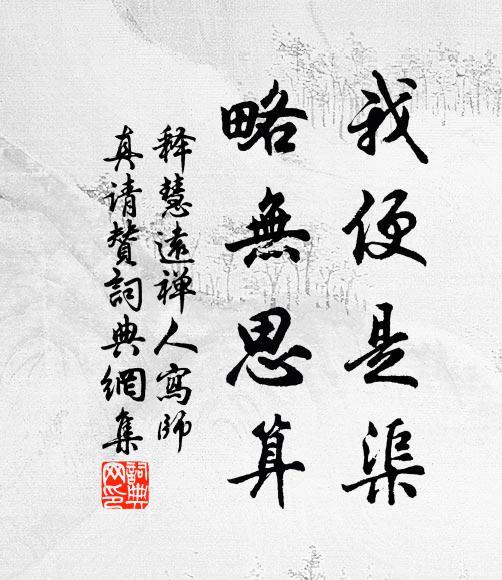 我便是渠
略無思算
释慧遠禅人寫師
真请赞詞典網集
詞典
网印